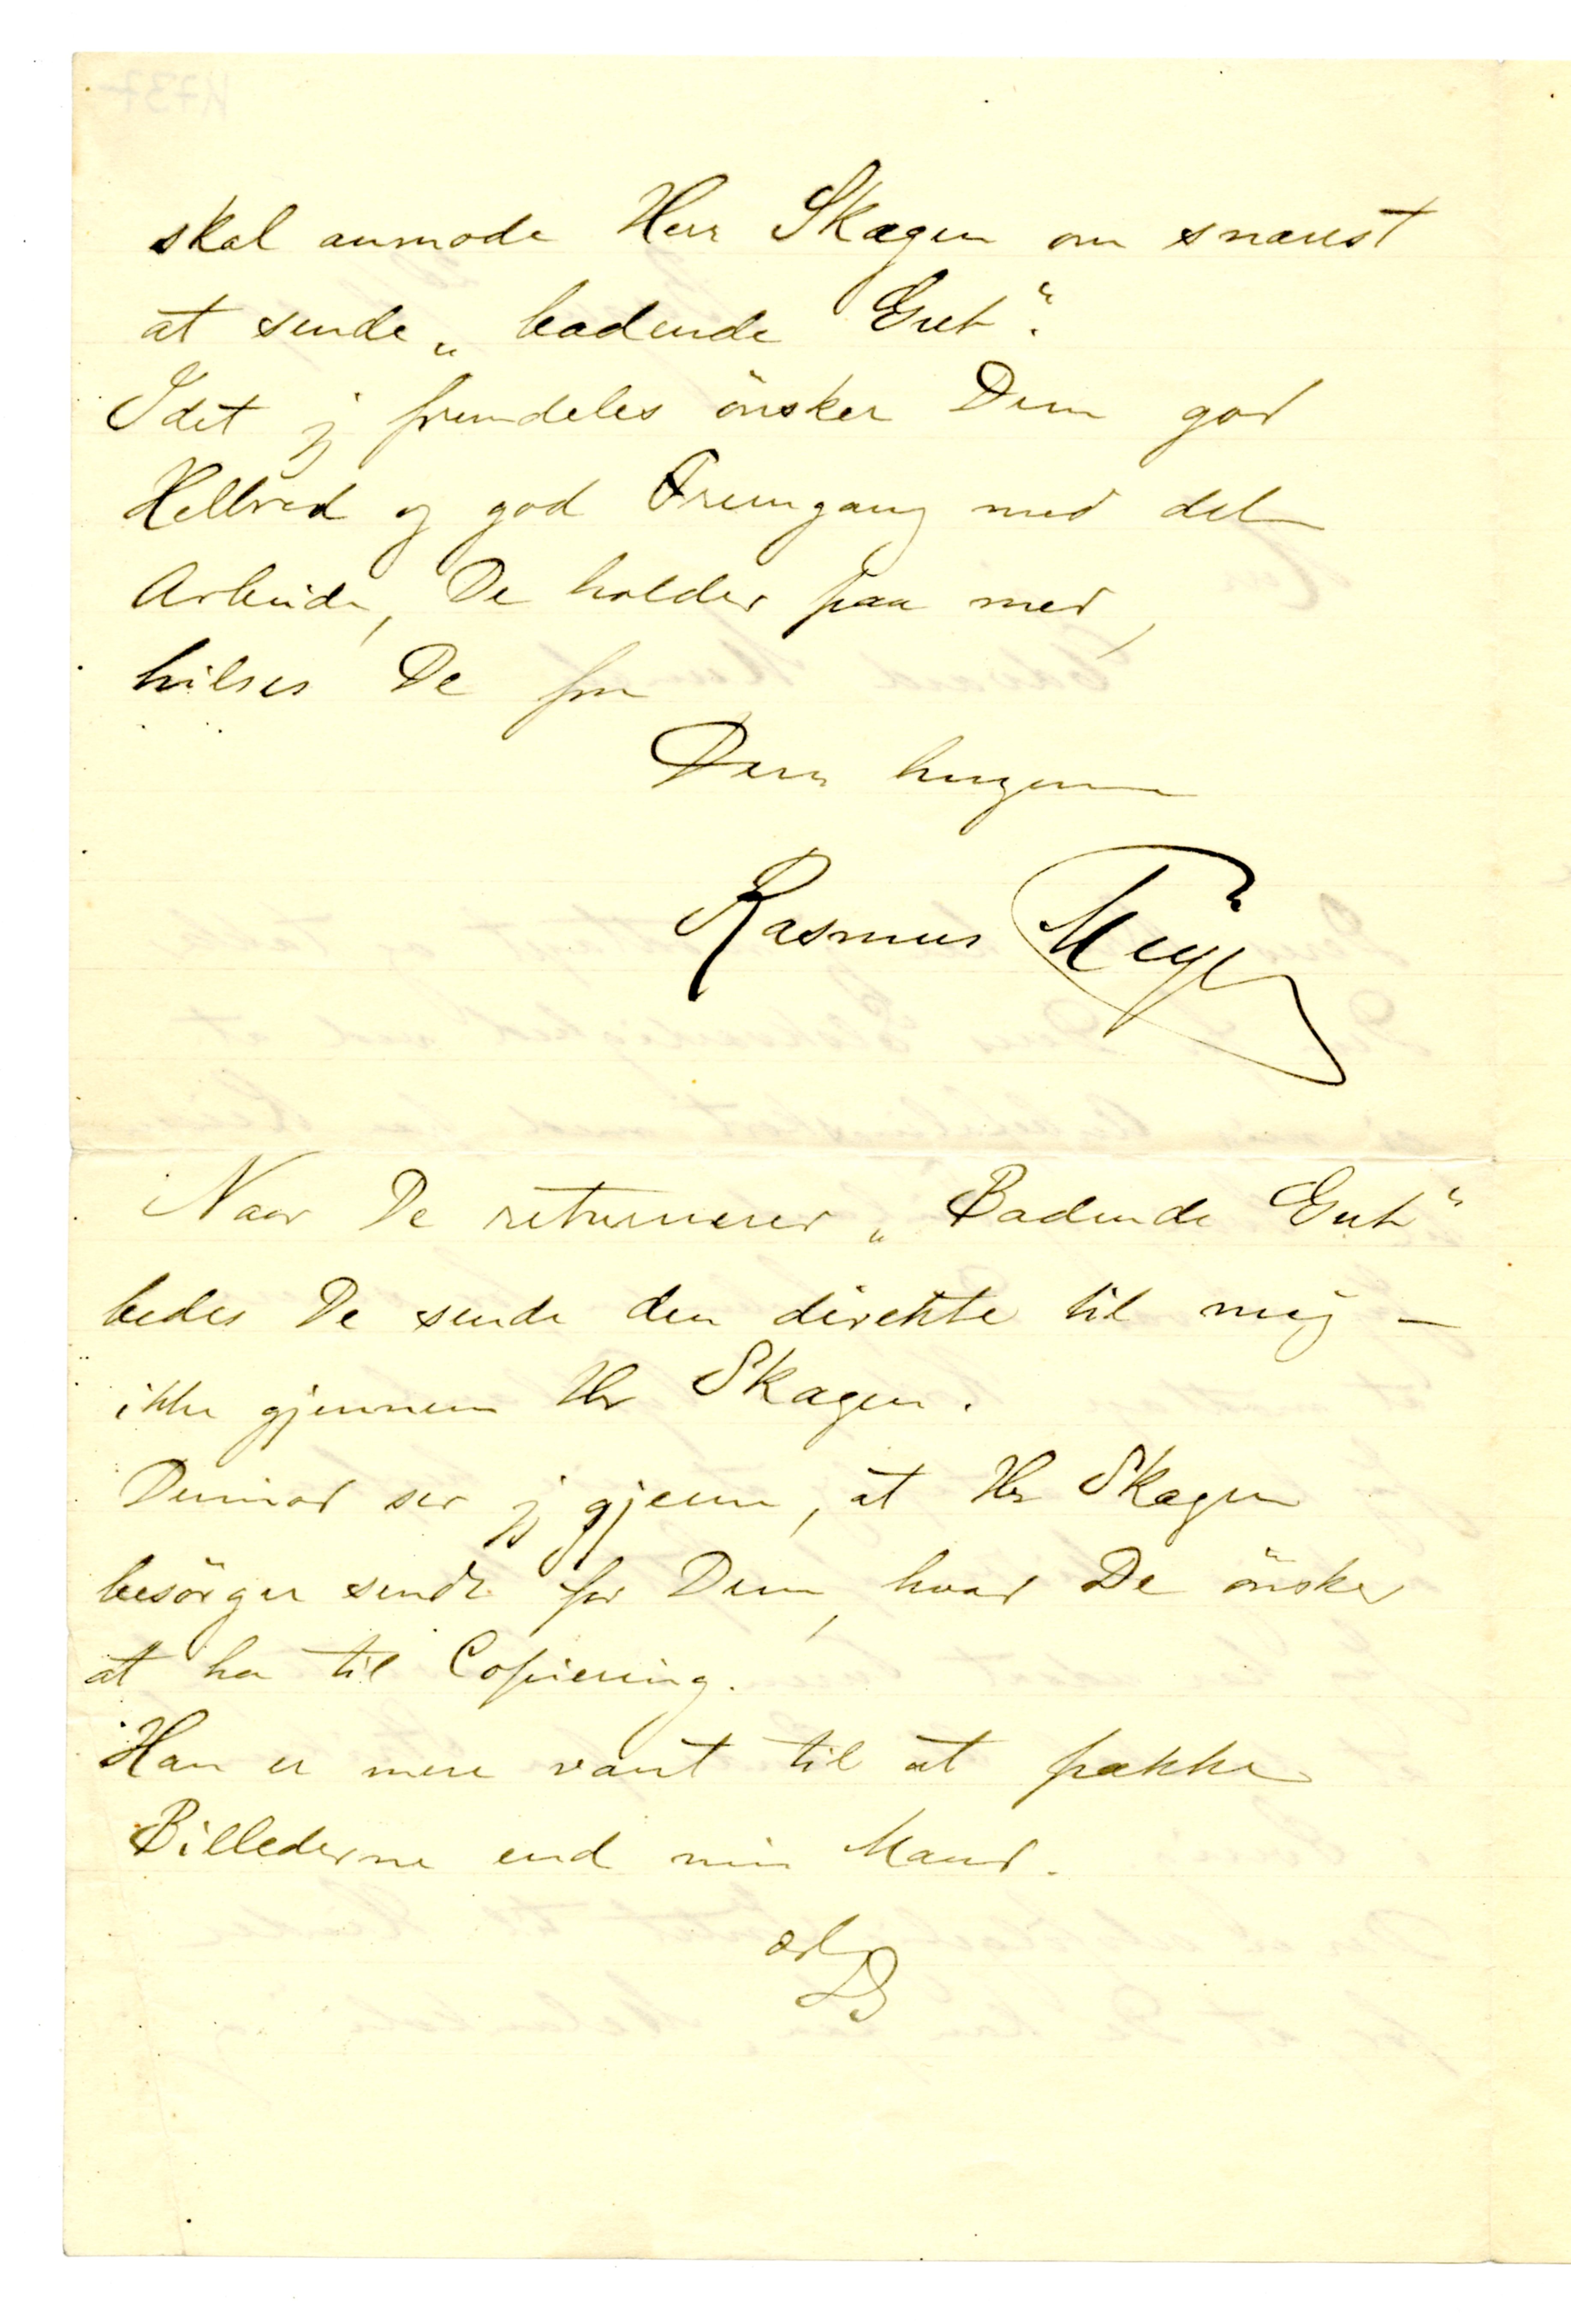 skal anmode Herr Skagen om snarest
at sende „badende Gut“.
Idet jeg fremdeles önsker Dem god
Helbred og god Fremgang med det
Arbeide, De holder paa med,
hilses De fra
Deres hengivne
Rasmus Meyer
Naar De returnerer „Badende Gut“
bedes De sende den direkte til mig –
ikke gjennem Hr Skagen.
Derimod ser jeg gjerne, at Hr Skagen
besörger sendt for Dem, hvad De önsker
at ha til Copiering.
Han er mere vant til at pakke
Billederne end min Mand.